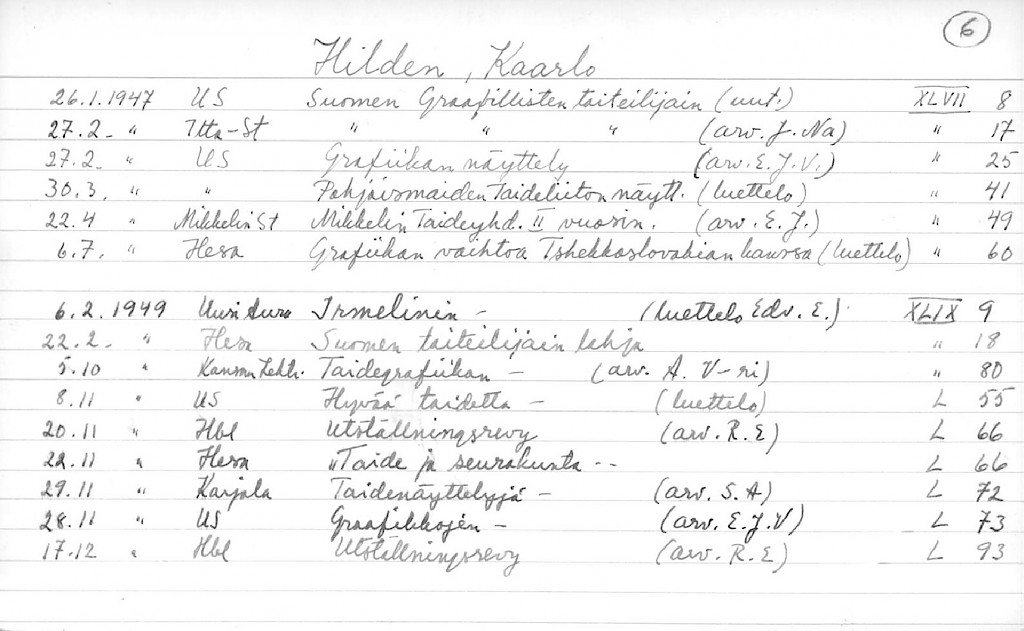 6
Hilden, Kaarlo
26.1.1947 US Suomen Graafillisten taiteilijain (uut.) XLVII 8
27.2. " Itta-St " " " (arv. J. Na) " 17
27.2. " US Grafiikan näyttely (arv. E. J. V.) " 25
30.3. " " Pohjoismaiden Taideliiton näytt. (luettelo) " 41
22.4 " Mikkelin St Mikkelin Taideyhd. II vuosin. (arv. E. J.) " 49
6.7. " Hesa Grafiikan vaihtoa Tshekkoslovakian kanssa (luettelo) " 60
6.2.1949 Uusi Aura Irmelinin - (luettelo Edv. E.) XLIX 9
22.2. " Hesa Suomen taiteilijain lahja " 18
5.10 " Kansan Lehti. Taidegrafiikan - (arv. A. V-ri) " 80
8.11 " US Hyvää taidetta - (luettelo) L 55
20.11 " Hbl Utställningsrevy (arv. R. E) L 66
22.11 " Hesa "Taide ja seurakunta -- L 66
29.11 " Karjala Taidenäyttelyjä - (arv. S. A) L 72
28.11 " US Graafikkojen - (arv. E. J. V) L 73
17.12 " Hbl Utställningsrevy (arv. R. E) L 93